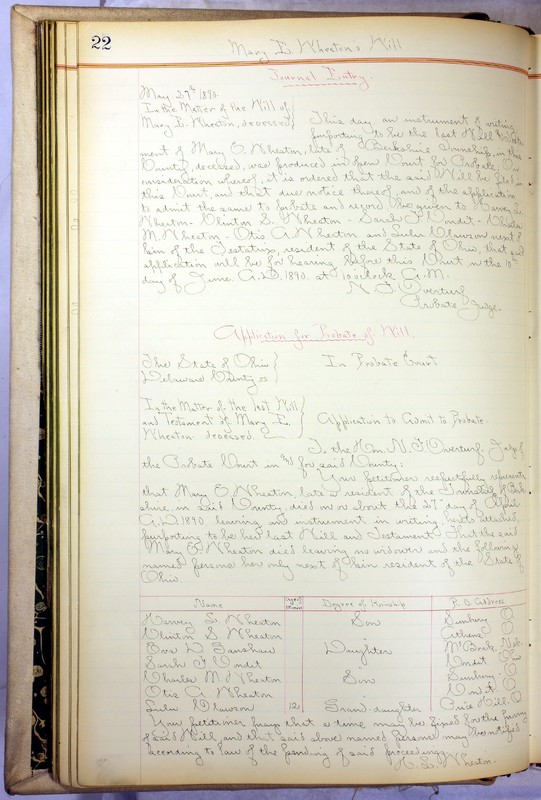 22
Mary E. Wheaton's Will
Journal Entry.
May 27th 1890.
In the Matter of the Will of
Mary E. Wheaton, deceased
This day an instrument of writing
purporting to be the last Will & Testa
ment of Mary E. Wheaton, late of Berkshire Township, in this
County, deceased, was produced in open Court for Probate. On
consideration whereof, it is ordered that the said Will be filed in
this Court, and that due notice thereof, and of the application
to admit the same to probate and record be given to
Wheaton - Clinton S. Wheaton - Sarah F. Condit - Charles
M. Wheaton - Otis A. Wheaton and Lulu Clawson next of
kin of the Testatrix, resident of the State of Ohio, that said
application will be for hearing before this Court on the 10th
day of June. A.D. 1890. at 10 o'clock A.M.
N. F. Overturf
Probate Judge.
Application for Probate of Will.
The State of Ohio
Delaware County ss
In Probate Court
In the Matter of the last Will
and Testament of Mary E.
Wheaton deceased.
Application to Admit to Probate.
To the Hon. N. F. Overturf. Judge of
the Probate Court in and for said County:
Your petitioner respectfully represents
that Mary E. Wheaton, late a resident of the Township of Berk
shire, in said County, died on or about the 27th day of April
A.D. 1890 leaving an instrument in writing hereto attached,
purporting to be her last Will and Testament. That the said
Mary E. Wheaton died leaving no widower and the following
named persons her only next of kin resident of the State of
Ohio.
Name Age Degree of Kinship P.O. Address
Harvey L. Wheaton Son Sunbury O
Clinton S Wheaton " Athens O
Daughter Neb.
Sarah F Condit " Condit
Charles M Wheaton Son Sunbury O
Otis A. Wheaton " Condit O
Lulu Clawson 12 Grand-daughter Hill. O
Your petitioner prays that a time may be fixed for the proving
of said Will and that said above named persons may be notified
according to law of the pending of said proceedings.
H. L. Wheaton.